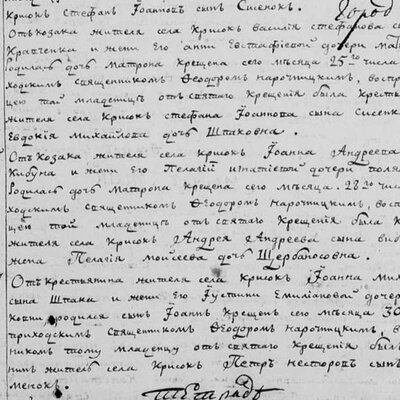 Крисокъ Стефанъ Іоанновъ сынъ Сисенокъ.
Отъ козака жителя села Крисокъ Василія Стефанова
Кравченка и жени его Анни Евстафіевой дочери
родилась дочь Матрона крещена сего мѣсяца 25го числа
ходскимъ священникомъ Феодоромъ Нарочницкимъ, воспр
цею той младеницѣ отъ святаго крещенія была
жителя села Крисокъ Стефана Іоаннова сына Сисенк
Евдокія Михайлова дочь Шпаковна.
Отъ козака жителя села Крисокъ Іоанна Андреева
Кибуна и жени его Пелагіи Игнатіевой дочери поля
родилась дочь Матрона крещена сего мѣсяца 28го чис
ходскимъ священникомъ Феодоромъ Нарочницкимъ, восп
цею той младеницѣ отъ святаго крещенія была к
жителя села Крисокъ Андрея Андреева сына
жена Пелагія Моисѣева дочь Щербаносовна.
Отъ крестянина жителя села Крисокъ Іоанна Ми
сына Шпака и жени его Іустини Емиліановой дочер
ковни родился сынъ Іоаннъ крещенъ сего мѣсяца 30
приходскимъ священникомъ Феодоромъ Нарочницкимъ, в
никомъ тому младенцу отъ святаго крещенія былъ
нинъ житель села Крисокъ Петръ Несторовъ сынъ
менокъ.